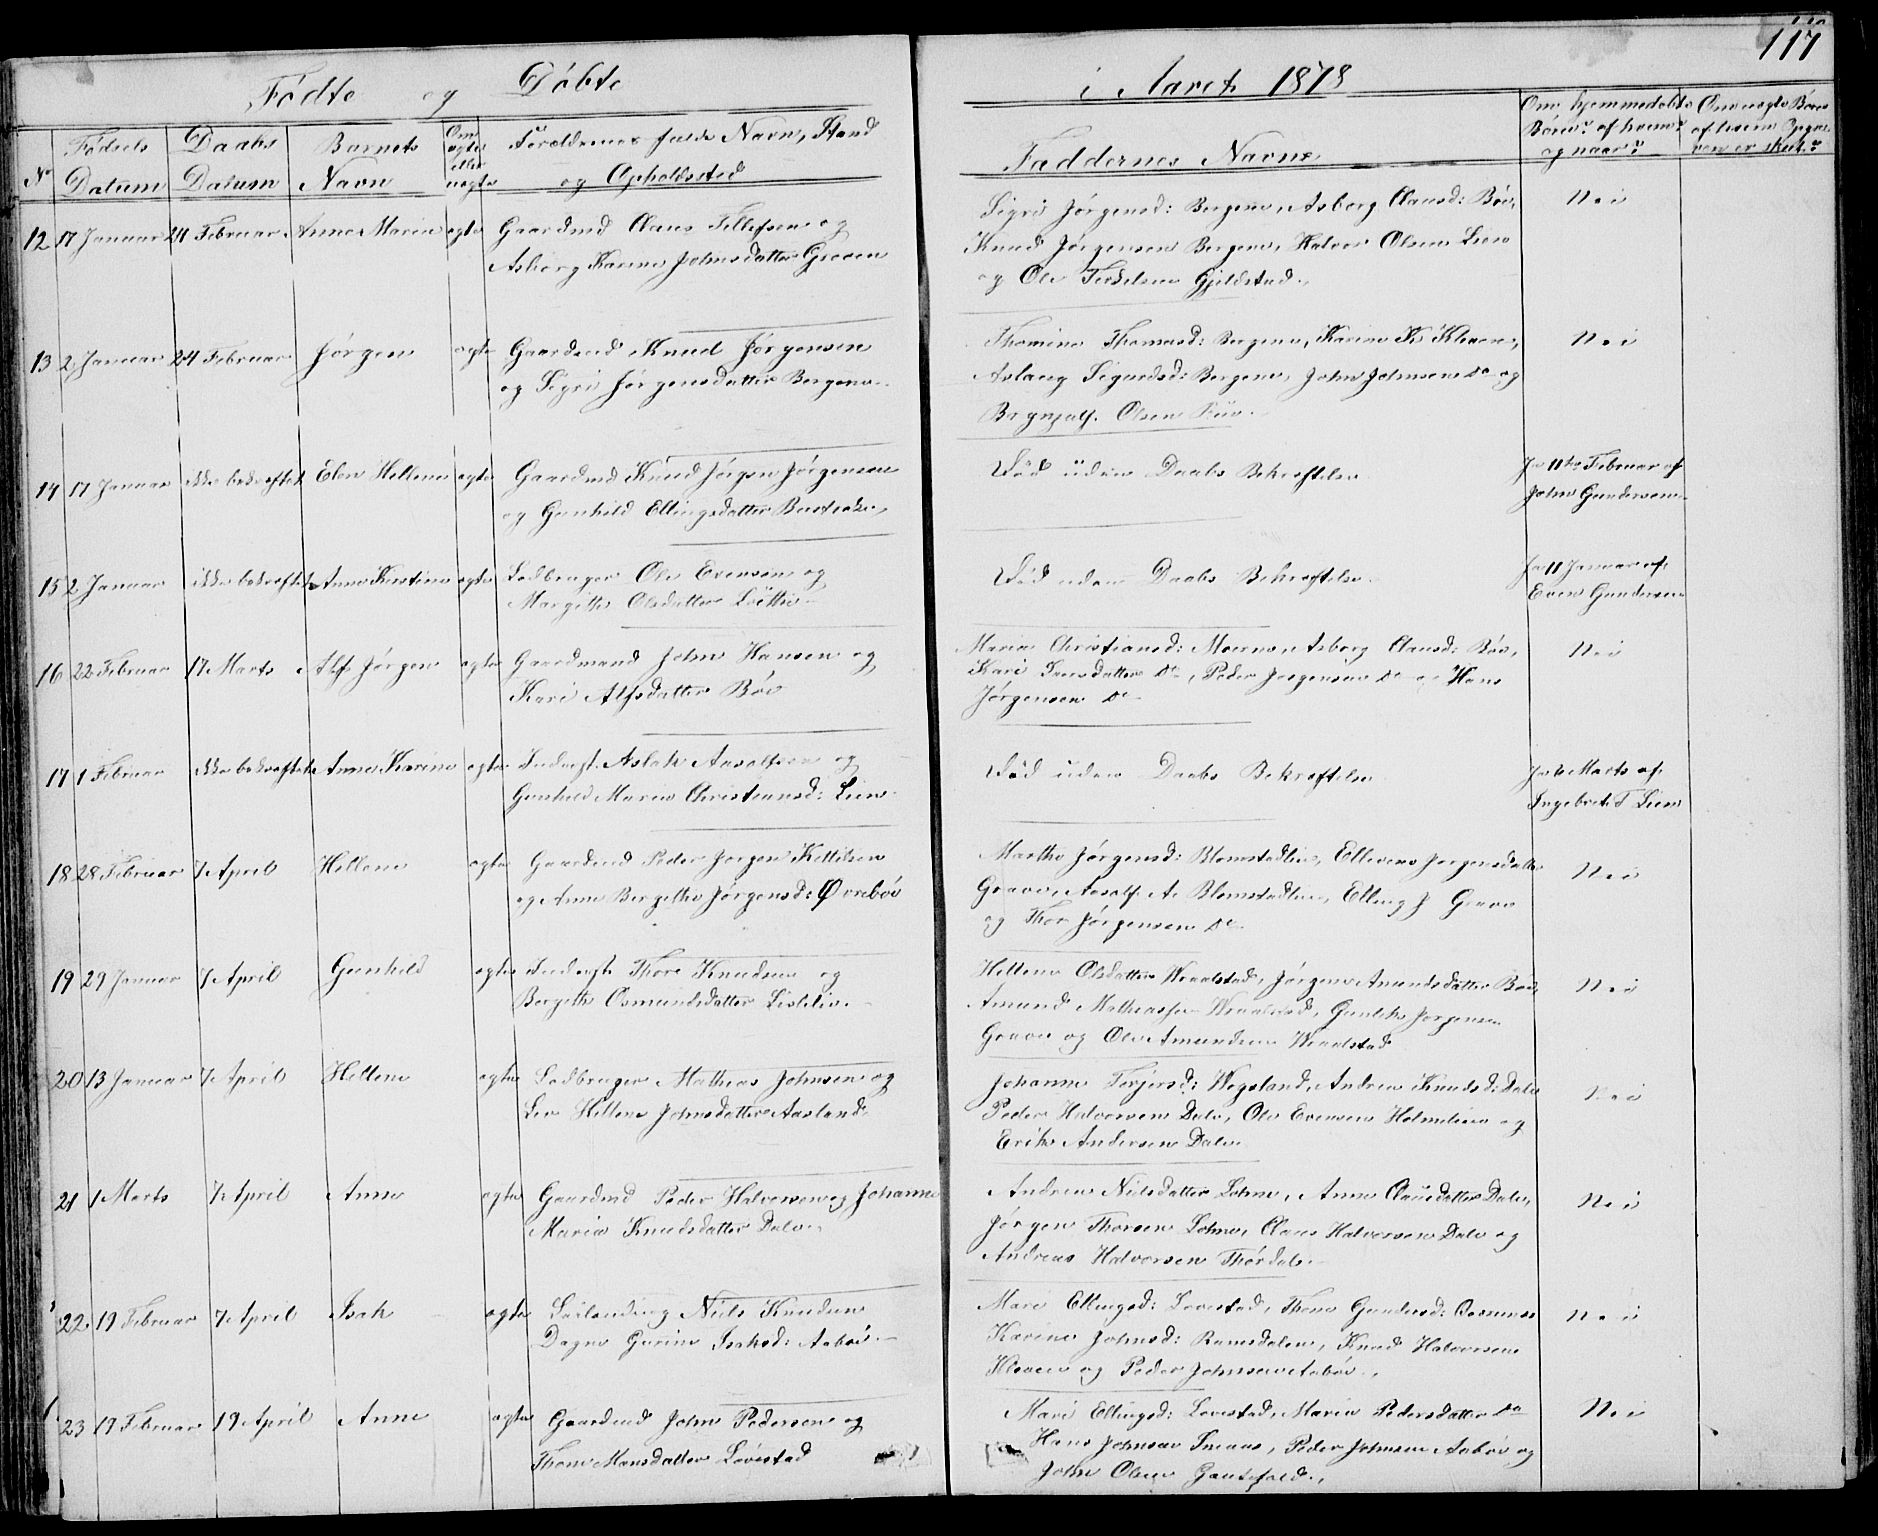 117
Fødte og Døbte i Aaret 1878
No
Fødsels Datum
Daabs Datum
Barnets Navn
Om ægte eller uægte
Forældrenes fulde Navn, Stand
og Opholdssted
Faddernes Navne
Om hjemmedøbte
Børn? af hvem?
og naar?
12 17 Januar 24 Februar Anne Maria ægte Gaardmd Claus Tellefsen og
Asborg Karine Johnsdatter Graven
Sigri Jørgensd: Bergene, Asborg Clausd: Bøe,
Knud Jørgensen Bergene, Halvor Olsen Lien
og Ole Terkelsen Gjeldstad.
Nei
13 2 Januar 24 Februar Jørgen ægte Gaardmd Knud Jørgensen
og Sigri Jørgensdatter Bergene
Thomine Thomasd: Bergene, Karine K Kleven,
Aslaug Sigurdsd: Bergene, John Johnsen Do og
Olsen
Nei
14 17 Januar ikke bekræftet Elen Hellene ægte Gaardmd Knud Jørgen Jørgensen
og Gunhild Ellingsdatter
Død uden Daabs Bekræftelse
Ja 11te Februar af
John Gundersen
15 2 Januar ikke bekræftet Anne Kirstine ægte Ole Evensen og
Margithe Olsdatter
Død uden Daabs Bekræftelse
Ja 11 Januar af
Even Gundersen
16 22 Februar 17 Marts Alf Jørgen ægte Gaardmand John Hansen og
Kari Alfsdatter Bøe
Maria Christiansd: Moerne, Asborg Clausd: Bøe,
Kari Do, Peder Jørgensen Do og Hans
Jørgensen Do
Nei
17 1 Februar ikke bekræftet Anne Karine ægte Inderst Aslak Aasolfsen og
Gunhild Maria Christiansd: Lien
Død uden Daabs Bekræftelse
Ja 6 Marts af
Ingebret T Lien
18 28 Februar 7 April Hellene ægte Gaardmd Peder Jørgen Kettilsen
og Anne Bergithe Jørgensd: Øvrebøe
Marthe Jørgensd: Blomstadlien, Ellevine Jørgensdatter
Grave, Aasolf A. Blomstadlien, Elling J Grave
og Thor Jørgensen Do
Nei
19 29 Januar 7 April Gunhild ægte Inderst Thore Knudsen og
Bergithe Osmundsdatter
Hellene Olsdatter Wraalstad, Jørgine Amundsdatter Bøe,
Amund Mathiassen Wraalstad, Gunleik Jørgensen
Grave og Ole Amundsen Wraalstad
Nei
20 13 Januar 7 April Hellene ægte Mathias Johnsen og
Hellene Johnsdatter Aasland
Johanne Terjersd: Wegeland, Andrea Knudsd: Dale
Peder Halvorsen Dale, Ole Evensen Holmelien og
Erik Andersen Dale
Nei
21 1 Marts 7 April Anne ægte Gaardmd Peder Halvorsen og Johanne
Maria Knudsdatter Dale
Andrea Nilsdatter Lohne, Anne Clausdatter Dale,
Jørgen Thorsen Lohne, Claus Halvorsen Dale og
Andreas Halvorsen Thørdal
Nei
22 19 Februar 7 April Isak ægte Niels Knudsen
Dagne Gurine Isaksd: Aabøe
Mari Ellingsd: Lovestad, Thone Gundersd:
Karine Johnsd: Ramsdalen, Knud Halvorsen
Kleven og Peder Johnsen Aabøe
Nei
23 17 Februar 19 April Anne ægte Gaardmd John Pedersen og
Thone Hansdatter Lovestad
Mari Ellingsd: Lovestad, Maria Pedersdatter Do
Hans Johnsen, Peder Johnsen Aabøe og
John Olsen
Nei